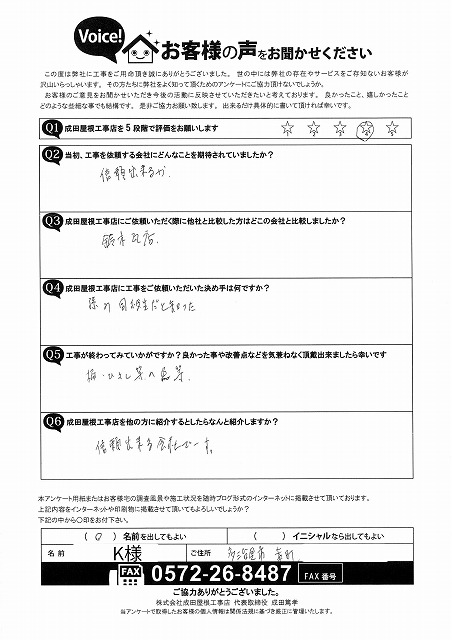 Voice!
お客様の声をお聞かせください
この度は弊社に工事をご用命頂き誠にありがとうございました。 世の中には弊社の存在やサービスをご存知ないお客様が
沢山いらっしゃいます。 その方たちに弊社をよく知って頂くためのアンケートにご協力頂けないでしょうか。
お客様のご意見をお聞かせいただき今後の活動に反映させていただきたいと考えております。 良かったこと、嬉しかったこと
どのような些細な事でも結構です。 是非ご協力お願い致します。 出来るだけ具体的に書いて頂ければ幸いです。
Q1 成田屋根工事店を5段階で評価をお願いします
☆1 ☆2 ☆3 ☆4 ☆5
Q2 当初、工事を依頼する会社にどんなことを期待されていましたか?
信頼出来るか.
Q3 成田屋根工事店にご依頼いただく際に他社と比較した方はどこの会社と比較しましたか?
瓦店.
Q4 成田屋根工事店に工事をご依頼いただいた決め手は何ですか?
だと知った
Q5 工事が終わってみていかがですか?良かった事や改善点などを気兼ねなく頂戴出来ましたら幸いです
ひさし等の
Q6 成田屋根工事店を他の方に紹介するとしたらなんと紹介しますか?
信頼出来る会社でーす。
本アンケート用紙またはお客様宅の調査風景や施工状況を随時ブログ形式のインターネットに掲載させて頂いております。
上記内容をインターネットや印刷物に掲載させて頂いてもよろしいでしょうか?
下記の中から〇印をお付け下さい。
( 〇 ) 名前を出してもよい ( ) イニシャルなら出してもよい
名 前 K様 ご住所 多治見市
FAX 0572-26-8487 FAX 番号
ご協力ありがとうございました。
株式会社成田屋根工事店 代表取締役 成田篤孝
当アンケートで取得したお客様の個人情報は関係法規に基づき厳正に管理いたします。